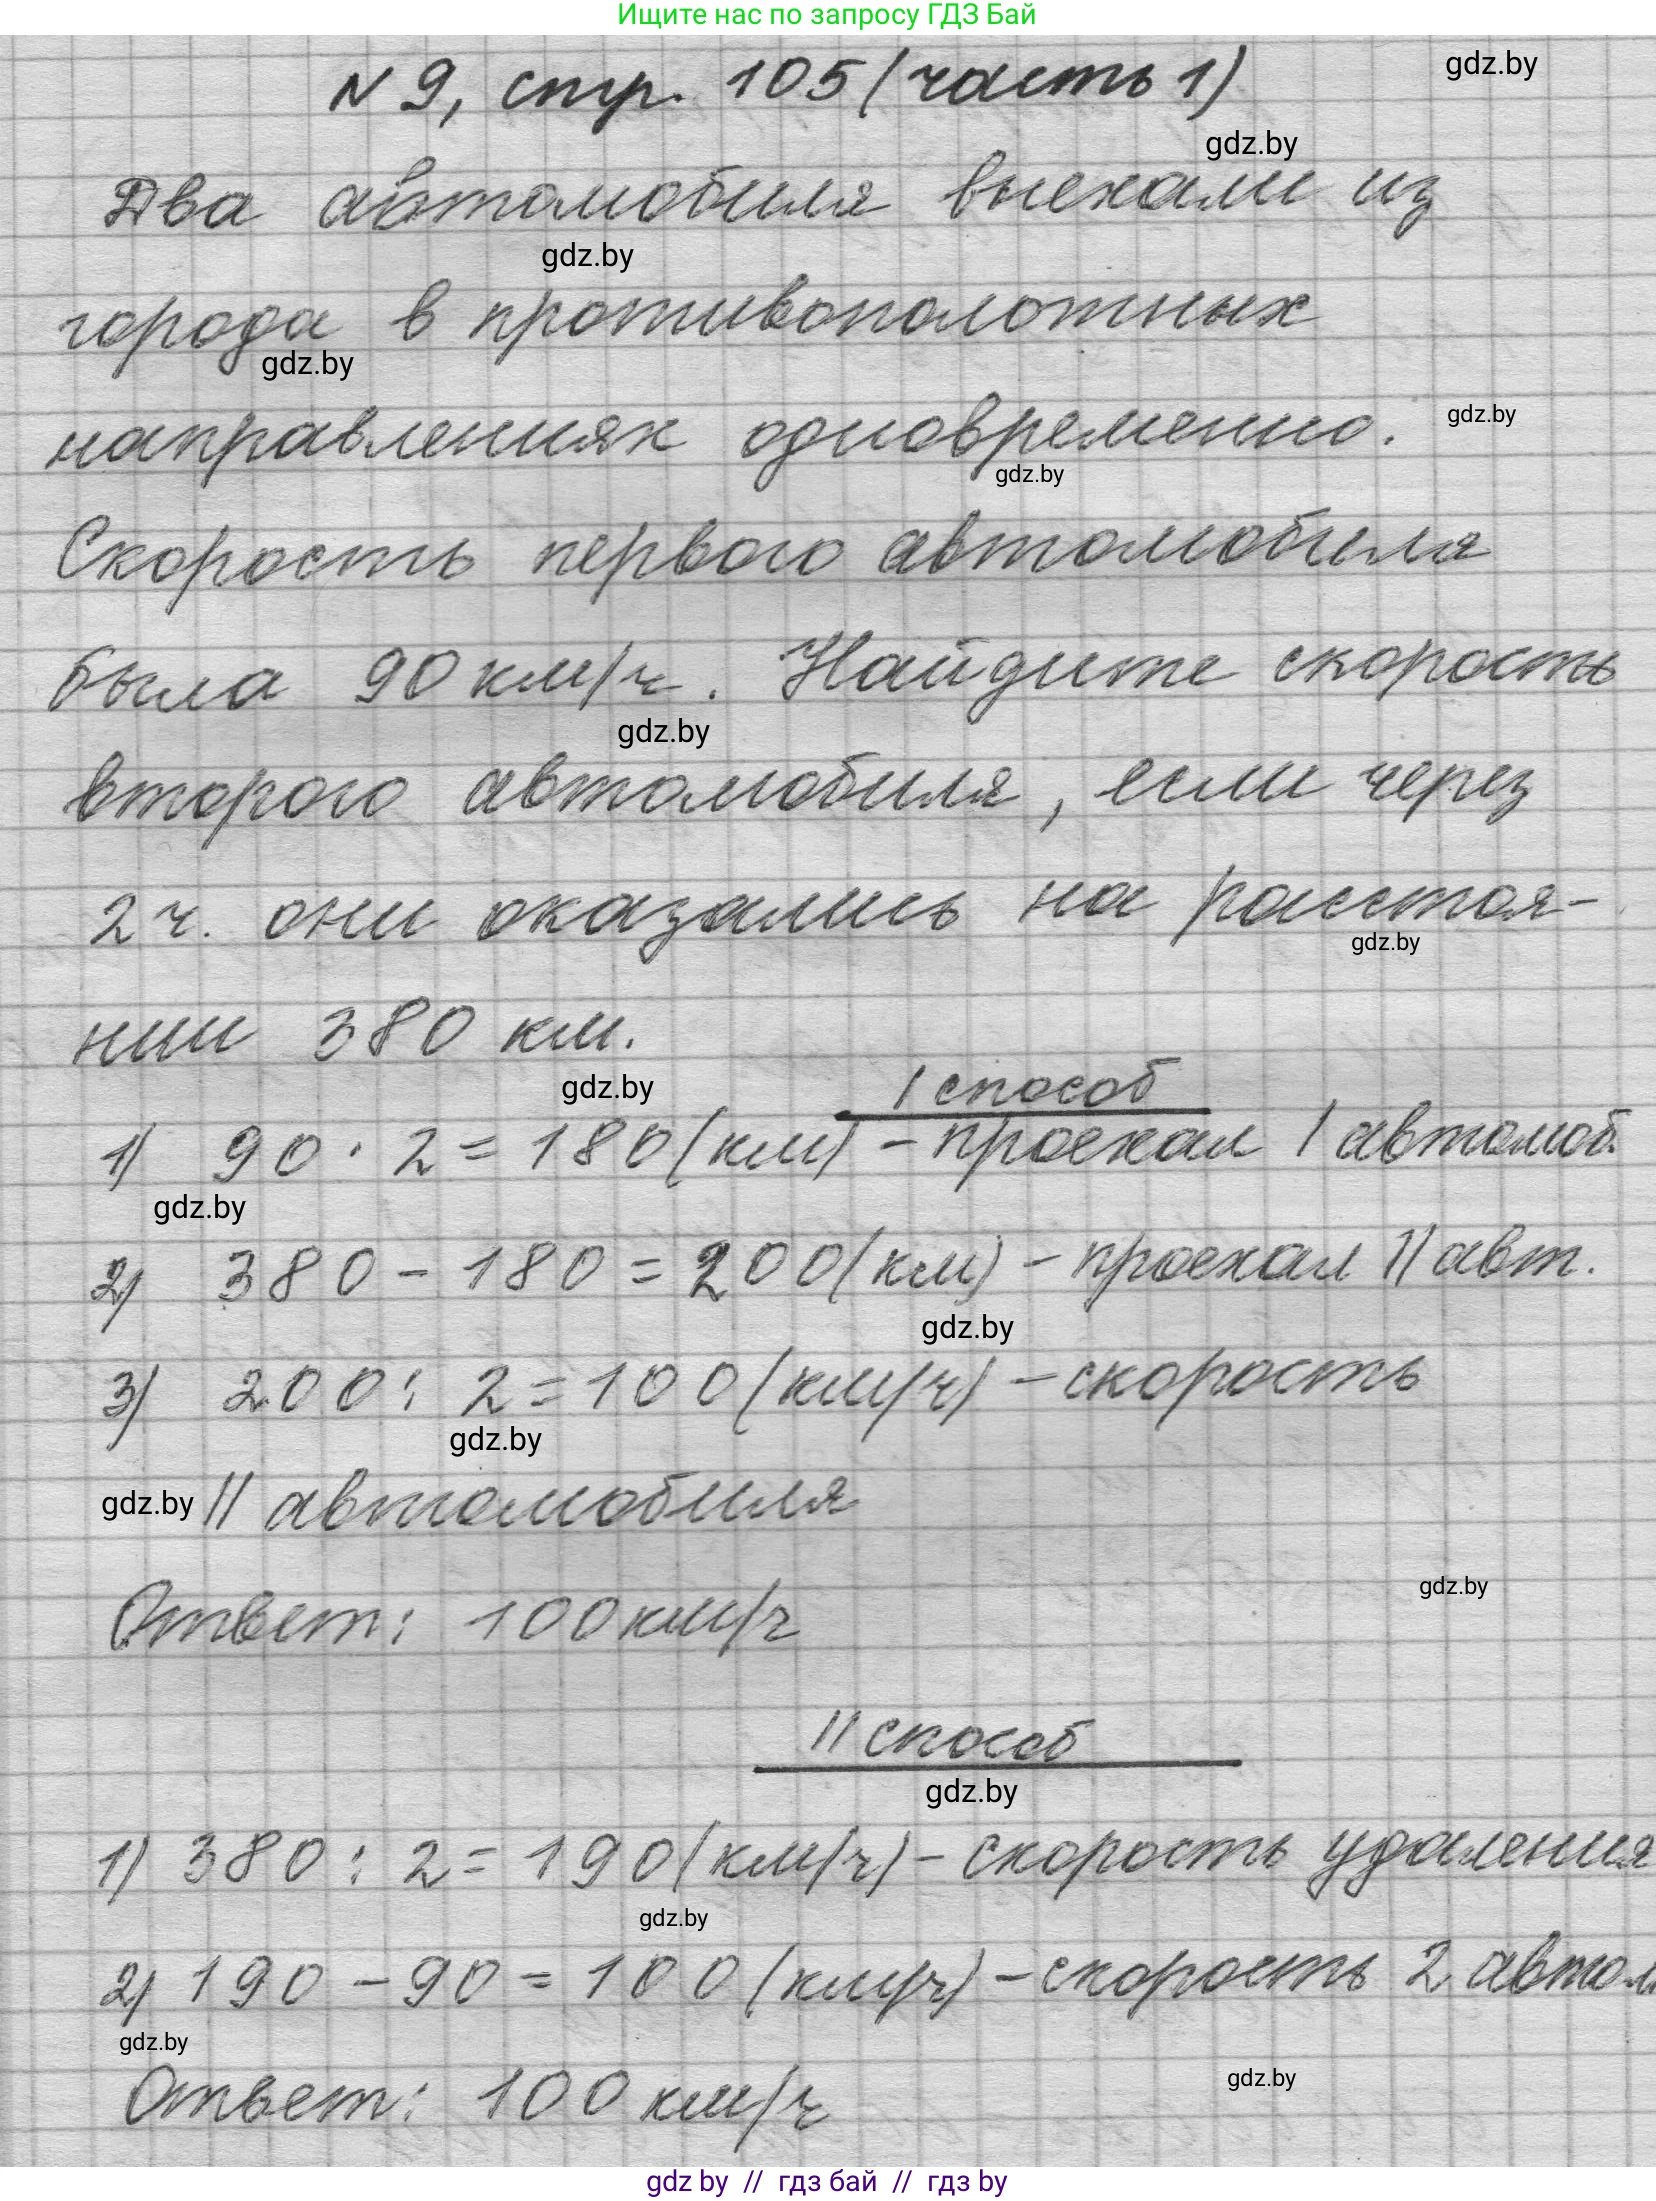 Ищите нас по запросу ГДЗ Бай
N 9, стр. 105 (часть 1)
gdz.by
gdz.by
Два автомобиля выехали из
gdz.by
города в противополотных
gdz.by
направлениях одновременно.
gdz.by
gdz.by
Скорость первого автомобиля
была 90 км/ч. Найдите скорость
gdz.by
второго автомобиля, если через
2 ч. они оказались на расстоя-
gdz.by
нии 380 км.
gdz.by
I способ
1) 90 · 2 = 180 (км) - проехал I автомоб.
gdz.by
2) 380 - 180 = 200 (км) - проехал II авт.
gdz.by
3) 200 : 2 = 100 (км/ч) - скорость
gdz.by
gdz.by II автомобиля
gdz.by
Ответ: 100 км/ч
II способ
gdz.by
1) 380 : 2 = 190 (км/ч) - скорость удаления
gdz.by
2) 190 - 90 = 100 (км/ч) - скорость 2 автом
gdz.by
gdz.by
Ответ: 100 км/ч
gdz by // гдз бай // гдз by